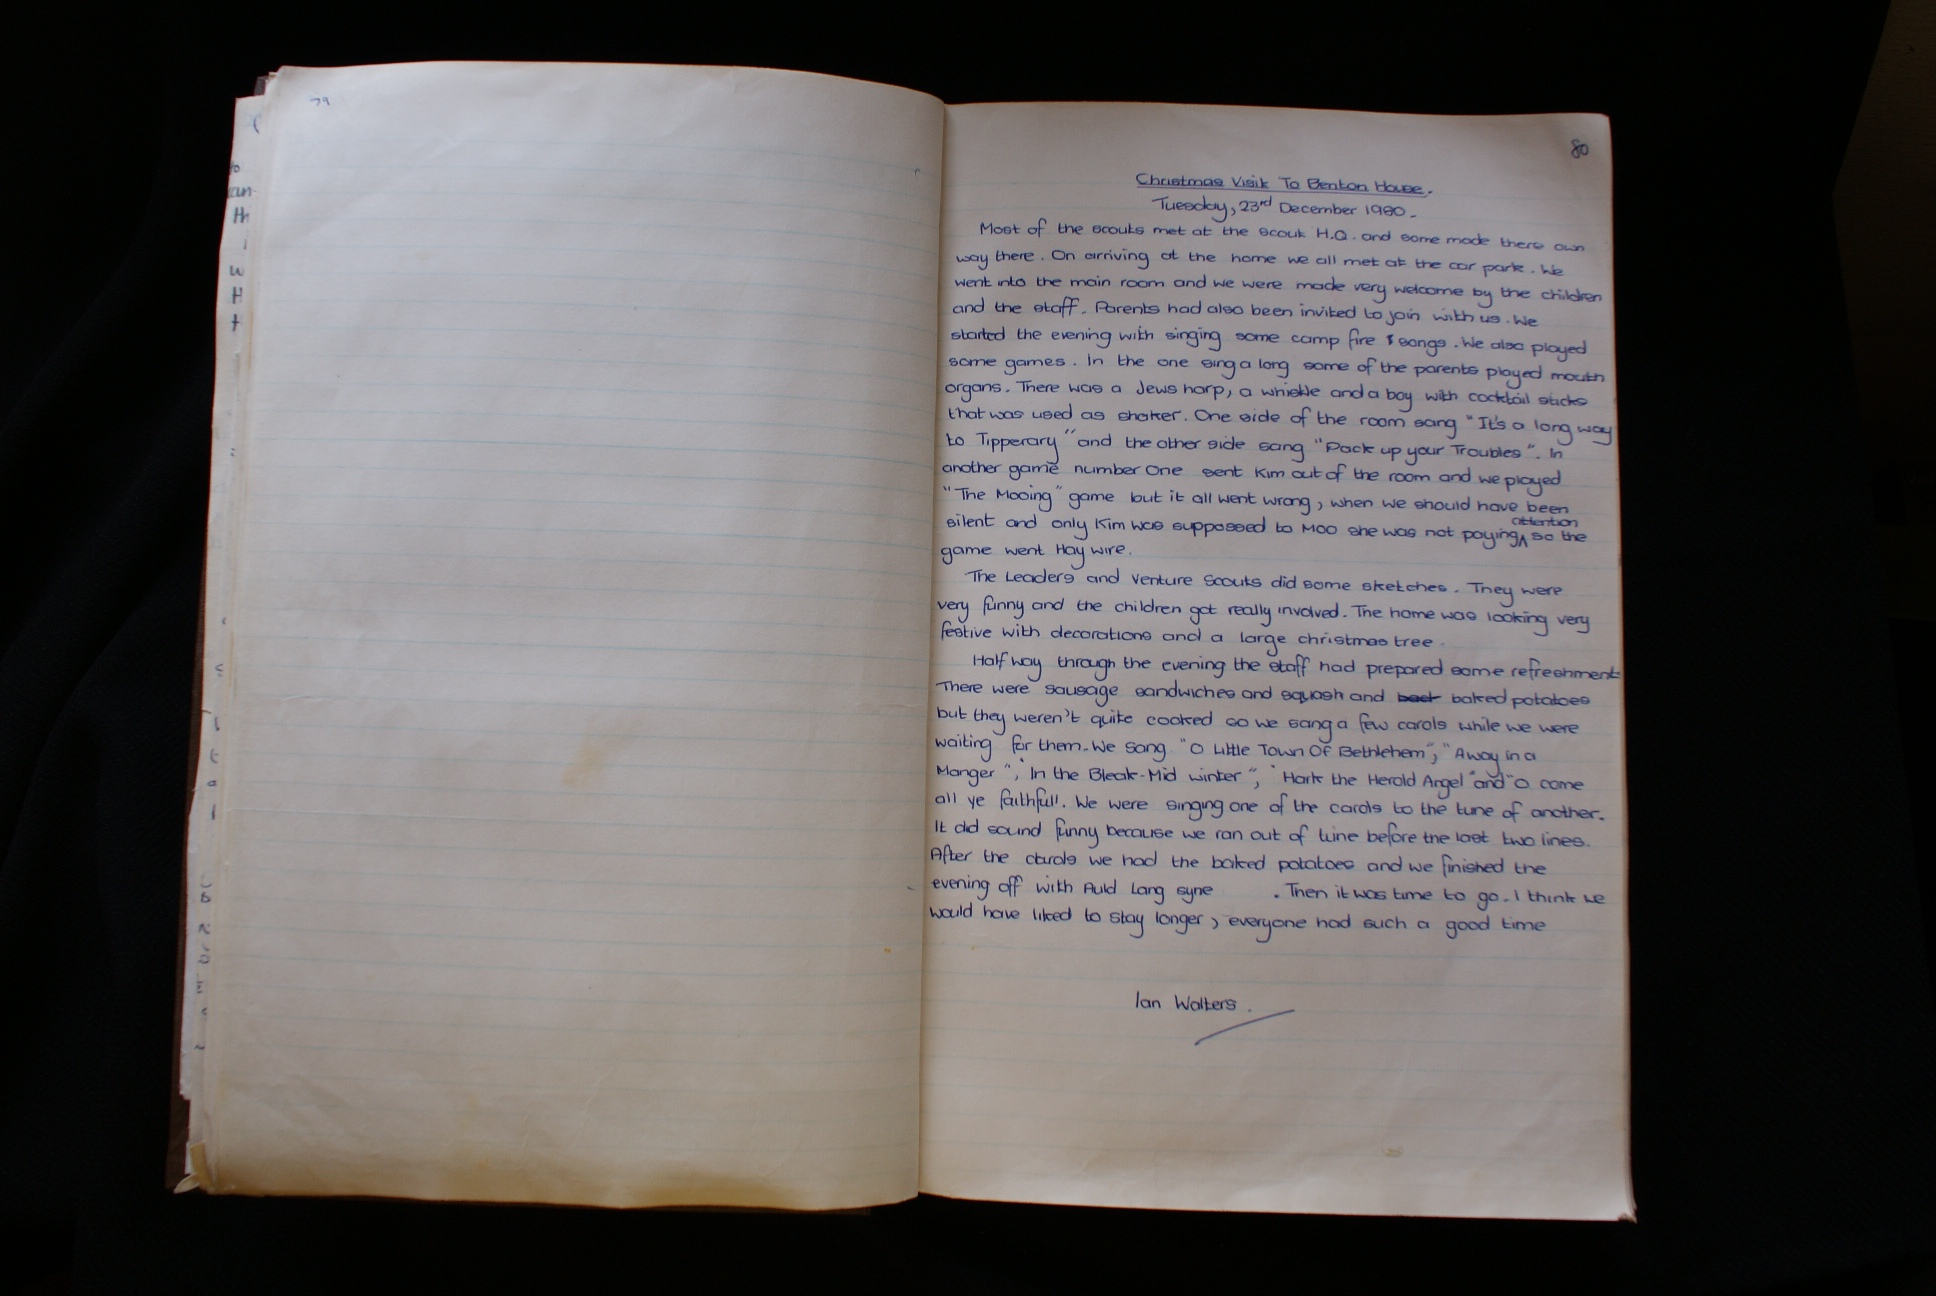 79
80
Christmas Visit To Benton House.
Tuesday, 23rd December 1980.
Most of the scouts met at the scout H.Q. and some made there own
way there. On arriving at the home we all met at the car park. We
went into the main room and we were made very welcome by the children
and the staff. Parents had also been invited to join with us. We
started the evening with singing some camp fire songs. We also played
some games. In the one sing a long some of the parents played mouth
organs. There was a Jews harp, a whistle and a boy with cocktail sticks
that was used as shaker. One side of the room sang "It's a long way
to Tipperary" and the other side sang "Pack up your Troubles". In
another game number One sent Kim out of the room and we played
"The Mooing" game but it all went wrong, when we should have been
silent and only Kim was suppossed to Moo she was not paying attention so the
game went Hay wire.
The Leaders and Venture Scouts did some sketches. They were
very funny and the children got really involved. The home was looking very
festive with decorations and a large christmas tree.
Half way through the evening the staff had prepared some refreshment
There were sausage sandwiches and squash and baked potatoes
but they weren't quite cooked so we sang a few carols while we were
waiting for them. We sang "O Little Town Of Bethlehem", "Away in a
Manger", "In the Bleak-Mid winter", "Hark the Herold Angel" and "O come
all ye faithfull. We were singing one of the carols to the tune of another.
It did sound funny because we ran out of tune before the last two lines.
After the carols we had the baked potatoes and we finished the
evening off with Auld Lang syne . Then it was time to go. I think we
would have liked to stay longer, everyone had such a good time
Ian Walters.